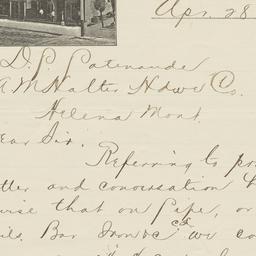 Apr. 28
D. P. Patenaude
A. M Halter Hdwe Co.
Helena Mont.
ear Sir.
Referring to pr
tter and conversation
ise that on Pipe, or
ils. Bar Iron &c we co